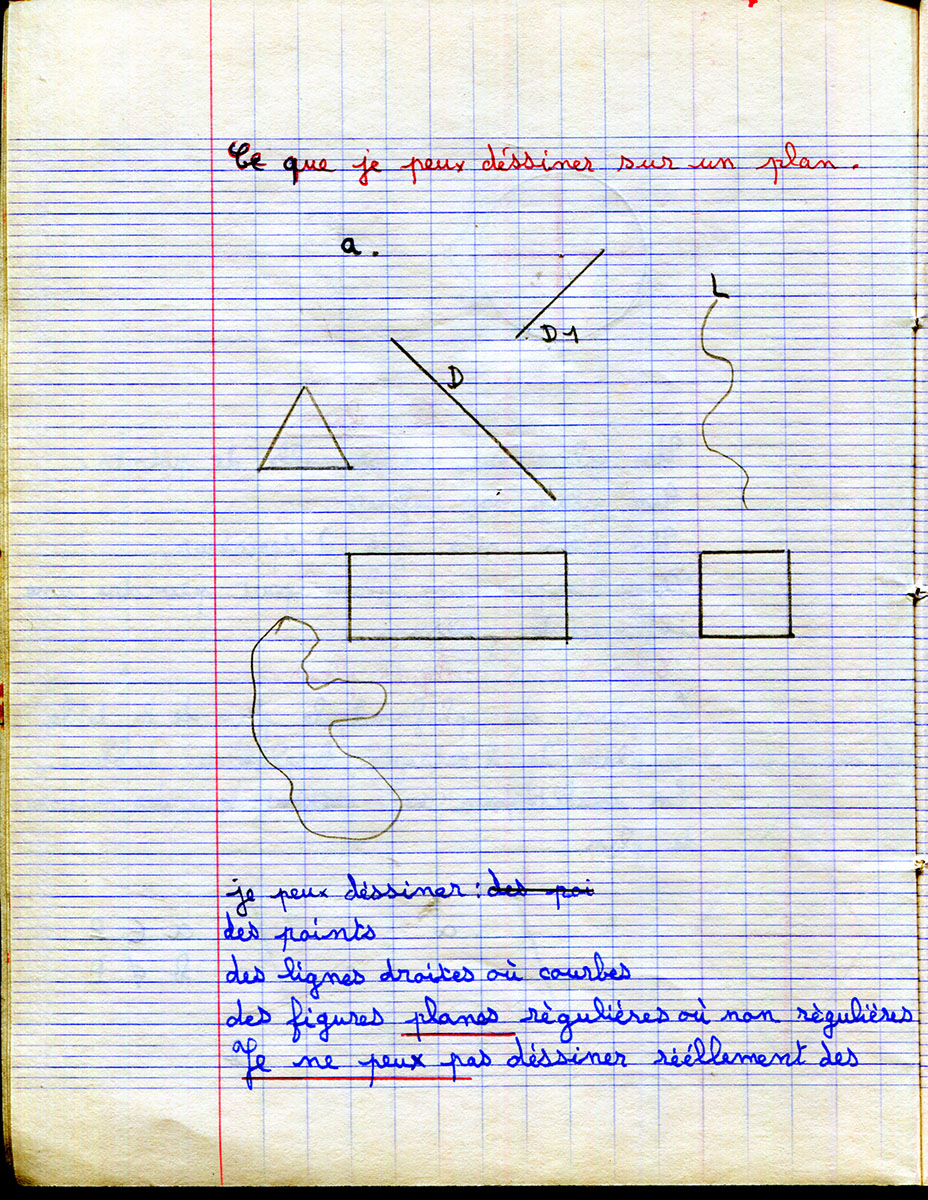 Ce que je peux déssiner sur un plan.
a.
L
D1
D
je peux déssiner : des poi
des points
des lignes droites où courbes
des figures planes régulières où non régulières
Je ne peux pas déssiner réellement des